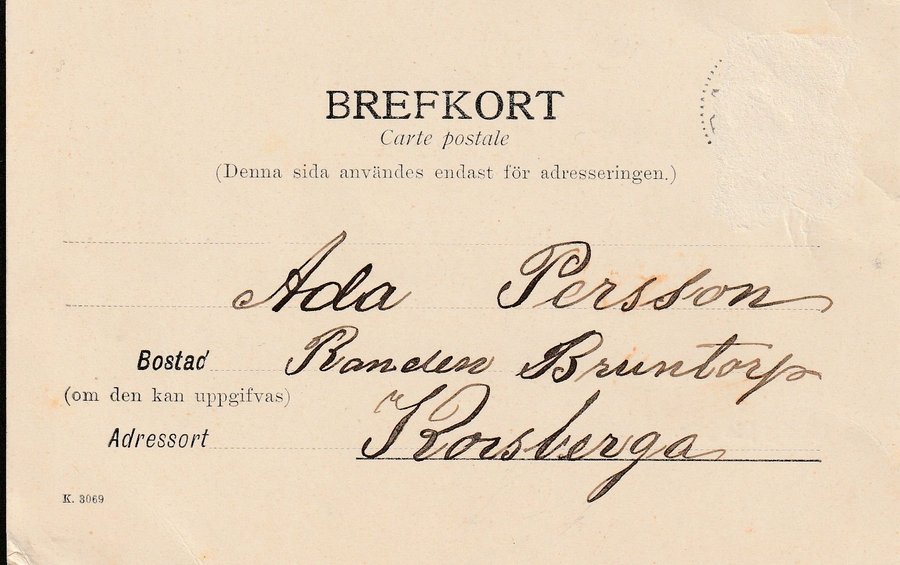 BREFKORT
Carte postale
(Denna sida användes endast för adresseringen.)
Ada Persson
Bostad Randen Bruntorp
(om den kan uppgifvas)
Adressort Korsberga
K. 3069